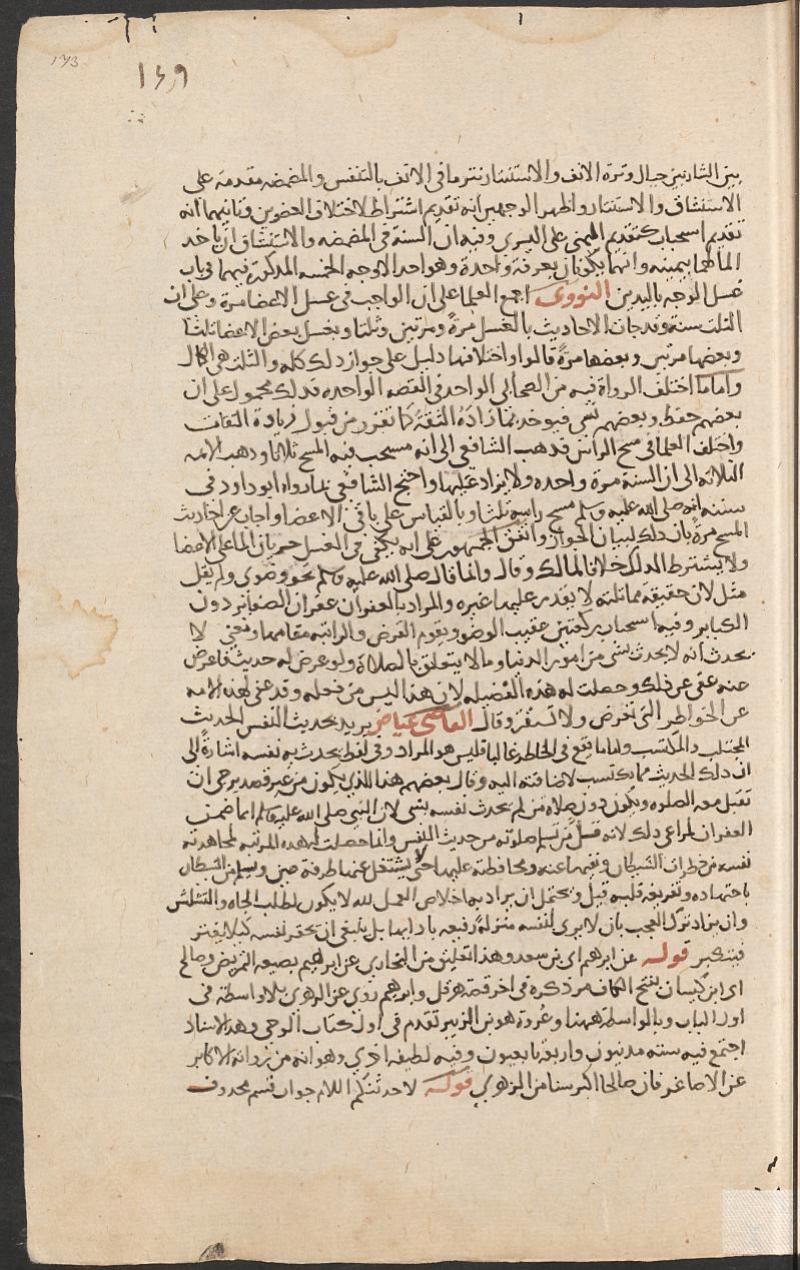 173
149
بين الشاربين حيال وترة الانف والاستنثار نثر ما في الانف بالتنفس والمضمضه مقدمة على
الاستنشاق والاستنثار واظهر الوجهين انه تقديم اشتراط لاختلاف العضوين وثانيهما انه
تقديم استحباب كتقديم اليمنى على اليسرى وفيه ان السنة في المضمضه والاستنشاق ان ياخذ
الماء لهما بيمينه وانهما يكونان بغرفة واحدة وهو احد الاوجه الخمسه المذكورة فيهما في باب
غسل الوجه باليدين النووي اجمع العلما على ان الواجب في غسل الاعضا مرة وعلى ان
الثلث سنة وقد جات الاحاديث بالغسل مرةً ومرتين وثلثا وبغسل بعض الاعضا ثلثا
وبعضها مرتين وبعضها مرةً قالوا واختلافها دليل على جواز ذلك كله والثلث هي الكمال
واما ما اختلف الرواة فيه من الصحابي الواحد في القصه الواحده فذلك محمول على ان
بعضهم حفظ وبعضهم نسي فيوخذ بما زاده الثقة كما تقرر من قبول زيادة الثقات
واختلف العلما في مسح الراس فذهب الشافعي الى انه مستحب فيه المسح ثلاثا وذهب الائمه
الثلاثه الى ان السنة مرة واحده ولا يزاد عليها واحتج الشافعي بما رواه ابو داود في
سننه انه صلى الله عليه وسلم مسح راسه ثلثا وبالقياس على باقي الاعضا واجاب عن احاديث
المسح مرةً بان ذلك لبيان الجواز واتفق الجمهور على انه يكفي في الغسل جريان الما على الاعضا
ولا يشترط الدلك خلافا لمالك وقال وانما قال صلى الله عليه وسلم نحو وضوي ولم يقل
مثل لان حقيقة مماثلته لا يقدر عليها غيره والمراد بالغفران غفران الصغائر دون
الكبائر وفيه استحباب ركعتين عقيب الوضو ويقوم الفرض والراتبه مقامهما ومعنى لا
يحدث انه لا يحدث بشي من امور الدنيا وما لا يتعلق بالصلاة ولو عرض له حديث فاعرض
عنه عفي عن ذلك وحصلت له هذه الفضيله لان هذا ليس من فعله وقد عفي لهذه الامه
عن الخواطر التي تعرض ولا تستقر وقال القاضي عياض يريد بحديث النفس الحديث
المجتلب والمكتسب واما ما يقع في الخاطر غالبا فليس هو المراد وفي لفظ يحدث به نفسه اشارةً الى
ان ذلك الحديث مما يكتسب لاضافته اليه وقال بعضهم هذا الذي يكون من غير قصد يرجى ان
تقبل معه الصلوه ويكون دون صلاه من لم يحدث نفسه بشي لان النبي صلى الله عليه وسلم انما ضمن
الغفران لمراعي ذلك لانه قل من تسلم صلوته من حديث النفس وانما حصلت له هذه المرتبه لمجاهدته
نفسه من خطرات الشيطان ونفيها عنه ومحافظته عليها حتى لا يشتغل عنها طرفة عين وسلم من الشيطان
باجتهاده وتفريغه قلبه قيل ويحتمل ان يراد به اخلاص العمل لله لا يكون لطلب الجاه و
وان يراد ترك العجب بان لا يرى لنفسه منزلةً رفيعه بادايها بل ينبغي ان يحقر نفسه كيلا يغتر
فيتكبر قوله عن ابرهيم اي بن سعد وهذا تعليق من البخاري عن ابرهيم بصيغه التمريض وصالح
اي ابن كيسان بفتح الكاف مر ذكره في اخر قصة هرقل وابرهيم روى عن الزهري بلا واسطة في
اول الباب وبالواسطة ههنا وعروة هو بن الزبير تقدم في اول كتاب الوحي وهذا الاسناد
اجتمع فيه ستة مدنيون واربعة تابعيون وفيه لطيفه اخري وهو انه من رواية الاكابر
عن الاصاغر فان صالحا اكبر سنا من الزهري قوله لاحدثنكم اللام جواب قسم محذوف